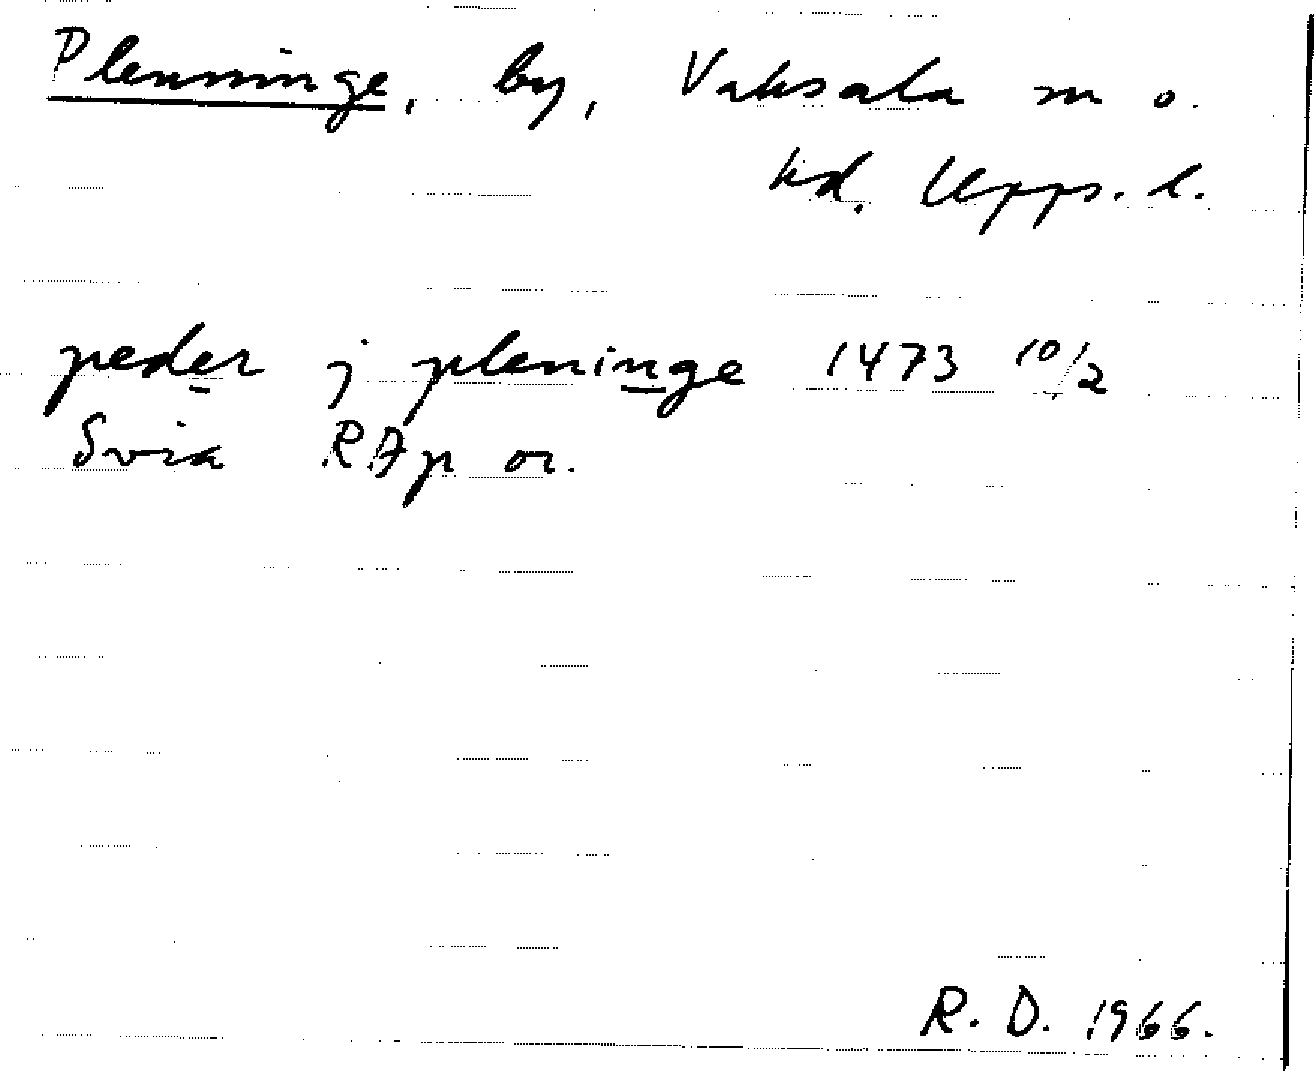 Plenninge, by, Vaksala sn o.
hd. Upps. l.
peder j pleninge 1473 10/2
Svia RAp or.
R. D. 1966.